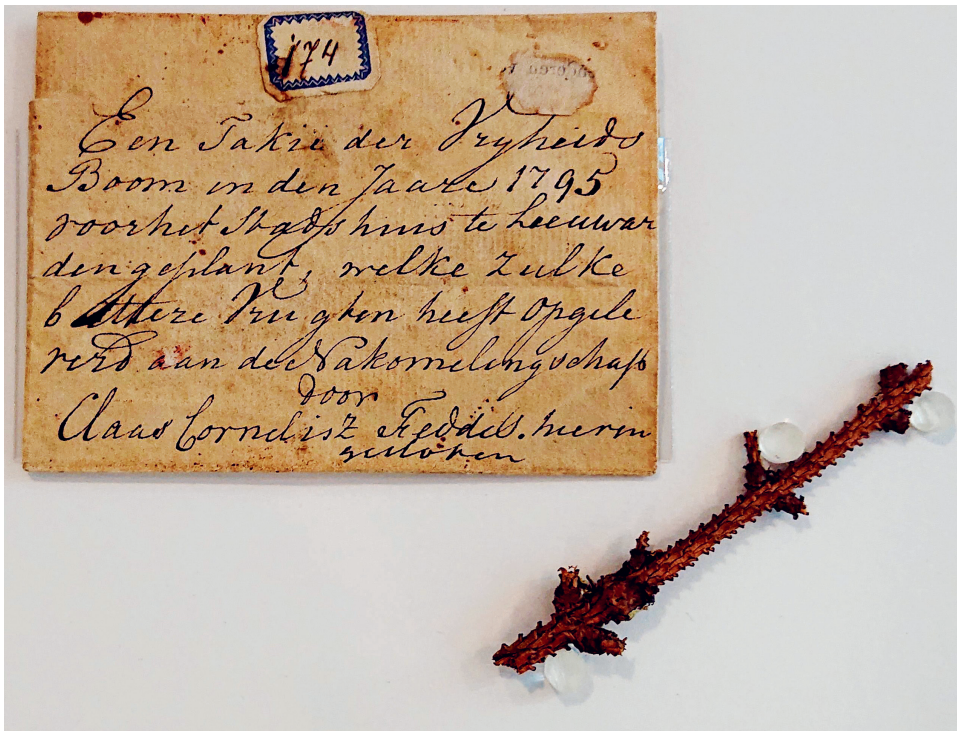 174
Een Takie der Vryheids
Boom in den Jaare 1795
voor het Stadshuis te Leeuwar
den geplant, welke zulke
bittere Vrugten heeft opgele
verd aan de Nakomelingschap
door
Claas Cornelisz Feddes. hierin